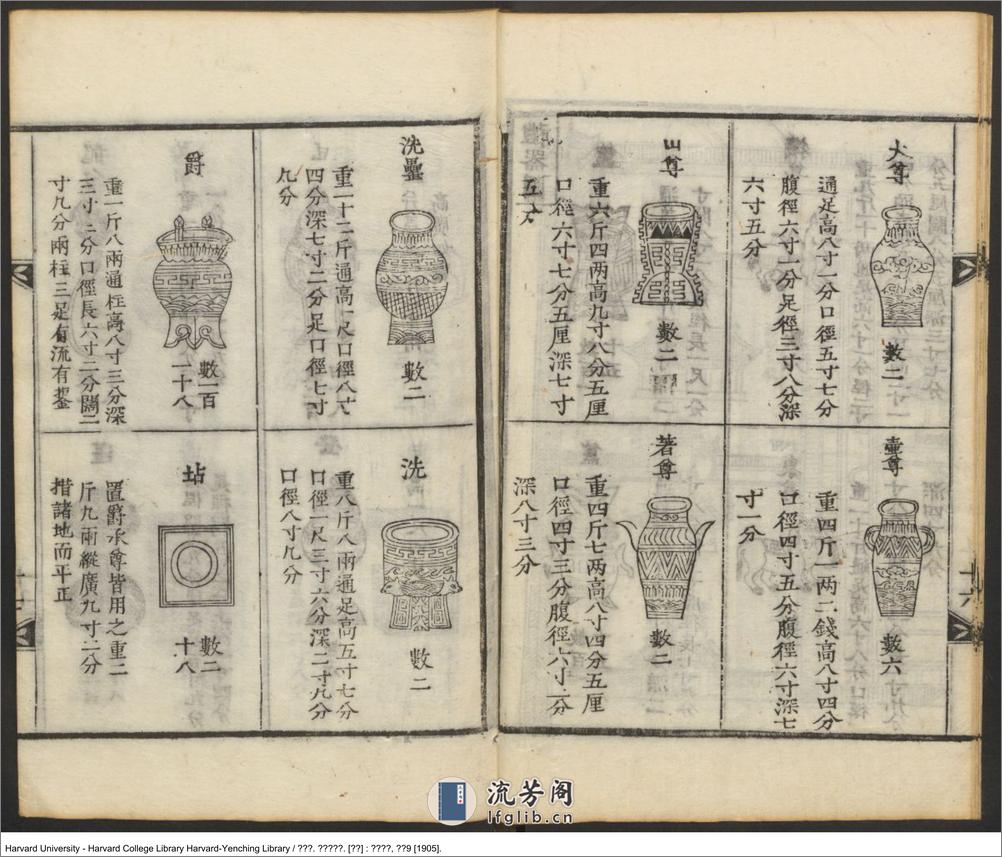 大尊
數二
通足高八寸一分口徑五寸七分
腹徑六寸一分足徑三寸八分深
六寸五分
壺尊
數六
重四斤一兩二錢高八寸四分
口徑四寸五分腹徑六寸深七
寸一分
山尊
數二
重六斤四兩高九寸八分五厘
口徑六寸七分五厘深七寸
五分
著尊
數二
重四斤七兩高八寸四分五厘
口徑四寸三分腹徑六寸二分
深八寸三分
十六
洗罍
數二
重二十二斤通高一尺口徑八寸
四分深七寸二分足口徑七寸
九分
洗
數二
重八斤八兩通足高五寸七分
口徑一尺三寸六分深二寸九分
口徑八寸九分
爵
數一百
一十八
重一斤八兩通柱高八寸三分深
三寸二分口徑長六寸二分闊二
寸九分兩柱三足有流有鋬
坫
數二
十八
置爵承尊皆用之重二
斤九兩縱廣九寸二分
措諸地而平正
流芳阁
lfglib.cn
Harvard University - Harvard College Library Harvard-Yenching Library / ???. ?????. [??] : ????, ??9 [1905].